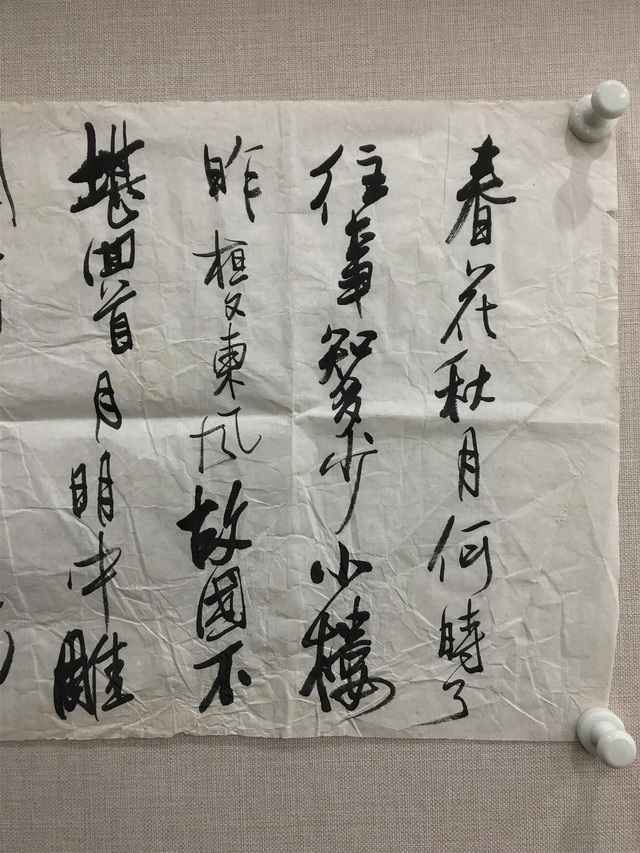 春花秋月何時了
往事知多少小樓
昨又東風故國不
堪回首月明中雕